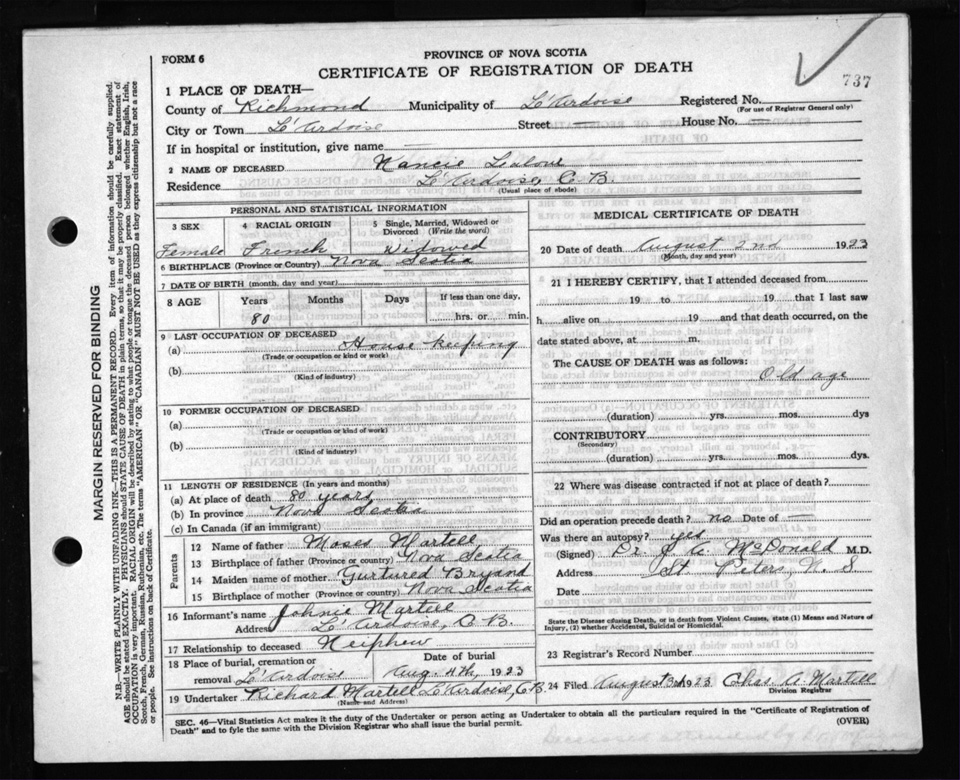 FORM 6
PROVINCE OF NOVA SCOTIA
CERTIFICATE OF REGISTRATION OF DEATH
737
1 PLACE OF DEATH—
County of Richmond Municipality of L'Ardoise Registered No.
(For use of Registrar General only)
City or Town L'Ardoise Street — House No. —
If in hospital or institution, give name —
2 NAME OF DECEASED Nancie
Residence L'Ardoise, C. B.
(Usual place of abode)
PERSONAL AND STATISTICAL INFORMATION
3 SEX 4 RACIAL ORIGIN 5 Single, Married, Widowed or Divorced (Write the word)
Female French Widowed
6 BIRTHPLACE (Province or Country) Nova Scotia
7 DATE OF BIRTH (month, day and year)
8 AGE Years Months Days If less than one day,
80 hrs. or min.
9 LAST OCCUPATION OF DECEASED
(a) House keeping
(Trade or occupation or kind or work)
(b)
(Kind of industry)
10 FORMER OCCUPATION OF DECEASED
(a)
(Trade or occupation or kind or work)
(b)
(Kind of industry)
11 LENGTH OF RESIDENCE (In years and months)
(a) At place of death 80 years
(b) In province Nova Scotia
(c) In Canada (if an immigrant)
Parents
12 Name of father Moses Martell
13 Birthplace of father (Province or Country) Nova Scotia
14 Maiden name of mother Gurtured Bryand
15 Birthplace of mother (Province or country) Nova Scotia
16 Informant's name Johnie Martell
Address L'Ardoise, C. B.
17 Relationship to deceased Neiphew
18 Place of burial, cremation or removal Date of burial
L'Ardoise Aug. 4th, 1923
19 Undertaker Richard Martell L'Ardoise, C.B.
(Name and Address)
MEDICAL CERTIFICATE OF DEATH
20 Date of death August 2nd 1923
(Month, day and year)
21 I HEREBY CERTIFY, that I attended deceased from
19 to 19 that I last saw
h alive on 19 and that death occurred, on the
date stated above, at m.
The CAUSE OF DEATH was as follows:
Old age
(duration) yrs. mos. dys
CONTRIBUTORY
(Secondary)
(duration) yrs. mos. dys.
22 Where was disease contracted if not at place of death?
Did an operation precede death? no Date of —
Was there an autopsy? yes
(Signed) Dr. McDonald M.D.
Address St. Peters, N. S.
Date
State the Disease causing Death, or in death from Violent Causes, state (1) Means and Nature of Injury, (2) whether Accidental, Suicidal or Homicidal.
23 Registrar's Record Number
24 Filed August 3rd 1923 Chas A. Martell
Division Registrar
SEC. 46—Vital Statistics Act makes it the duty of the Undertaker or person acting as Undertaker to obtain all the particulars required in the "Certificate of Registration of
Death" and to fyle the same with the Division Registrar who shall issue the burial permit. (OVER)
MARGIN RESERVED FOR BINDING
N.B.—WRITE PLAINLY WITH UNFADING INK—THIS IS A PERMANENT RECORD. Every item of information should be carefully supplied.
AGE should be stated EXACTLY. PHYSICIANS should STATE CAUSE OF DEATH in plain terms, so that it may be properly classified. Exact statement of
OCCUPATION is very important. RACIAL ORIGIN will be described by stating to what people or tongue the deceased person belonged whether English, Irish,
Scotch, French, German, Russian, Roumanian, etc. The terms "AMERICAN" or "CANADIAN" MUST NOT BE USED as they express citizenship but not a race
or people. See instructions on back of Certificate.